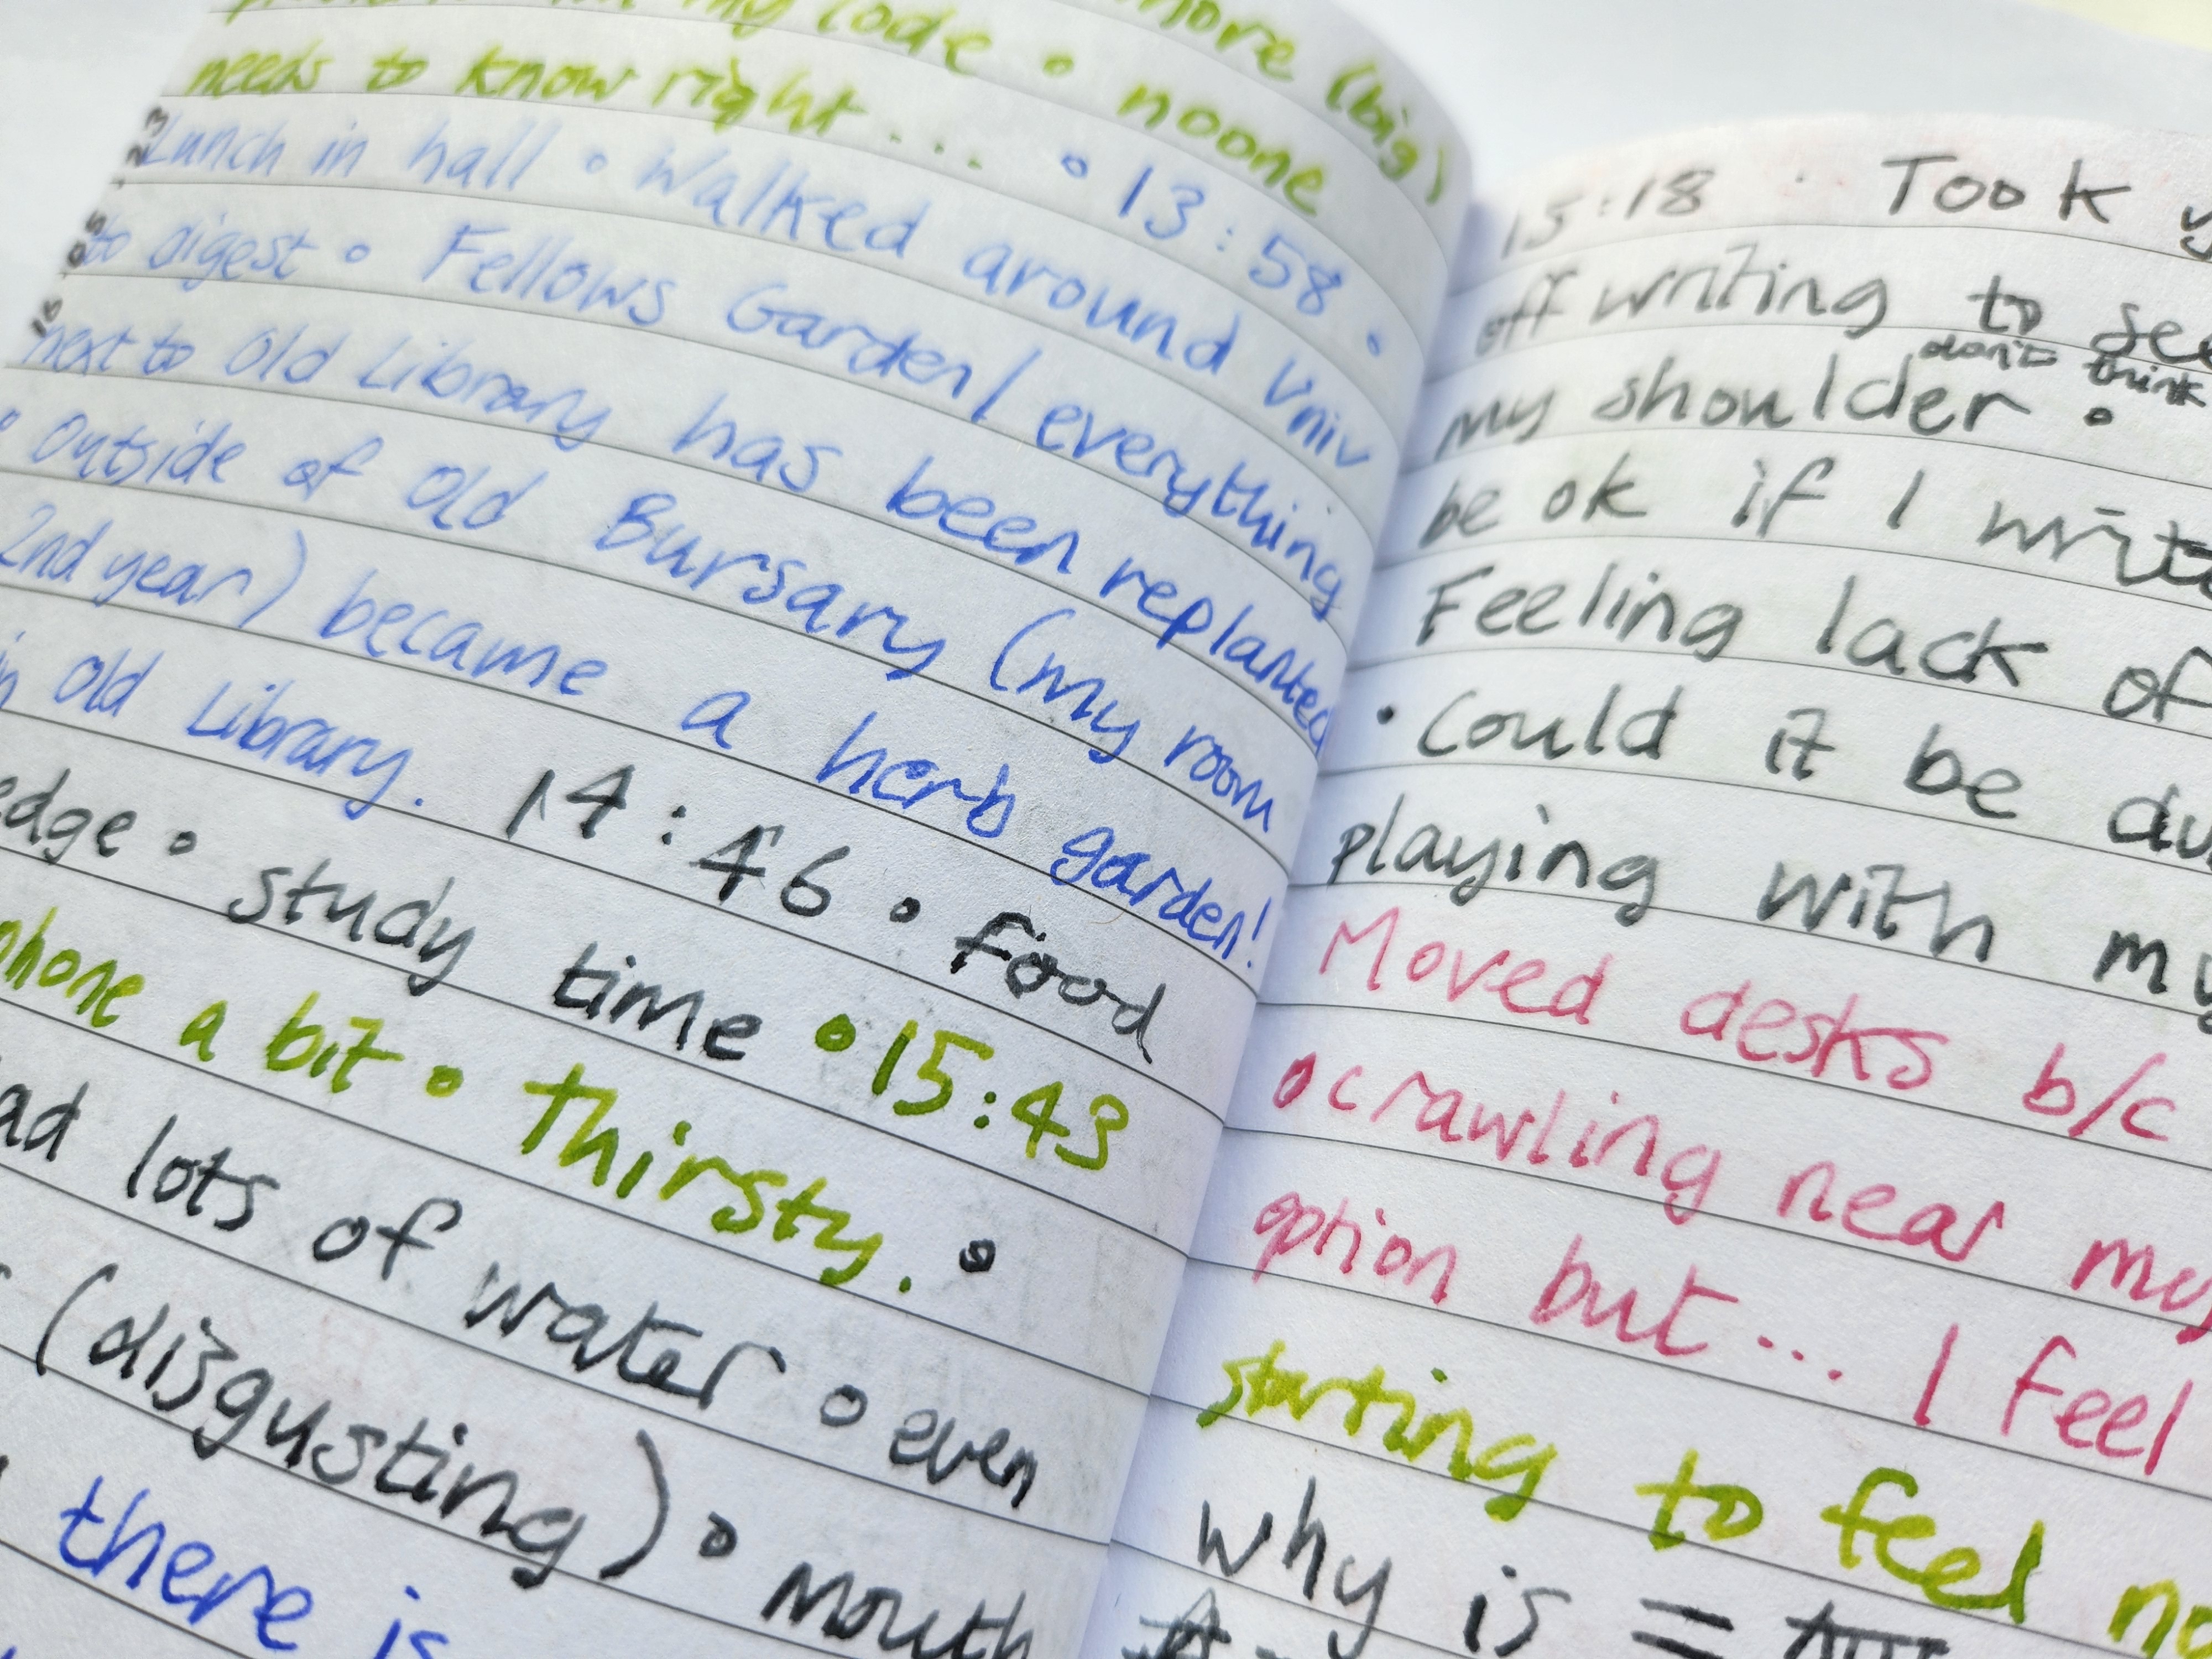 my code • noone
more (big)
needs to know right... • 13:58 •
Lunch in hall • Walked around Univ
to digest • Fellows Garden/everything
next to Old Library has been replanted
• Outside of Old Bursary (my room
2nd year) became a herb garden!
in Old Library. 14:46 • Food
edge • study time • 15:43
phone a bit • thirsty. •
ad lots of water • even
(disgusting) • Mouth
there is
15:18 · Took
off writing to see
don't think
my shoulder •
be ok if I write
Feeling lack of
• Could it be du
playing with my
Moved desks b/c
• crawling near my
option but... I feel
starting to feel no
why is =